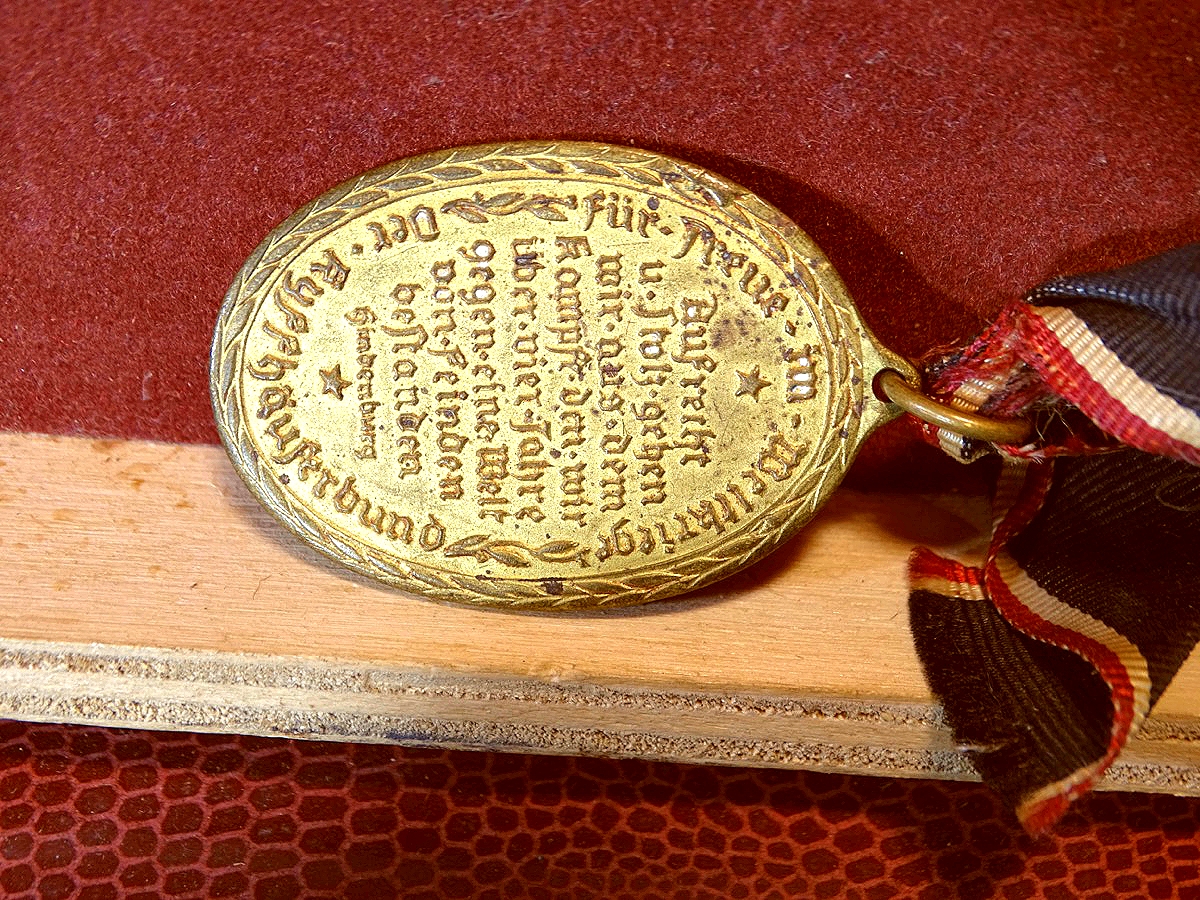 für · Treue · im · Weltkriege
Aufrecht
u. stolz gehen
wir · aus · dem
Kampfe dem wir
über · vier · Jahre
gegen · eine · Welt
von · Feinden
bestanden
Hindenburg
Der · Kyffhäuserbund